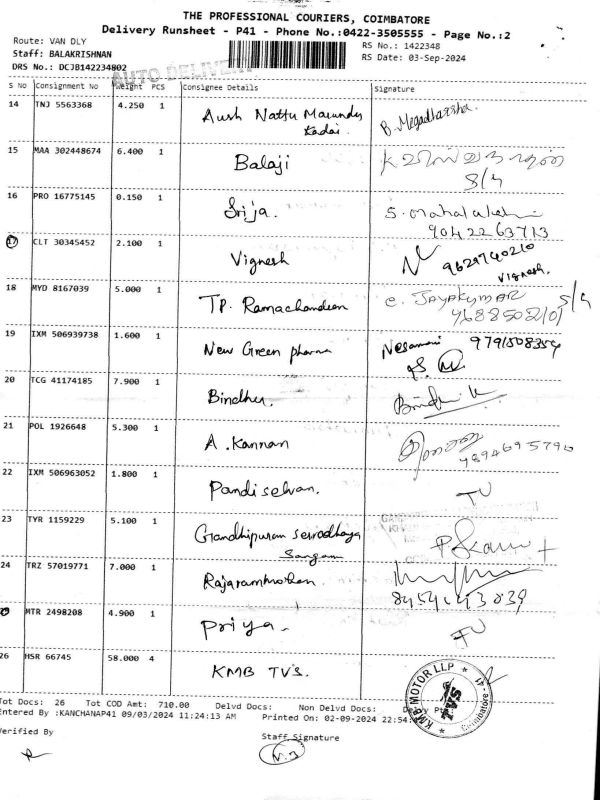 THE PROFESSIONAL COURIERS, COIMBATORE
Delivery Runsheet - P41 - Phone No.:0422-3505555 - Page No.:2
Route: VAN DLY
Staff: BALAKRISHNAN
DRS No.: DCJB142234802
RS No.: 1422348
RS Date: 03-Sep-2024
AUTO DELIVERY
S No Consignment No Weight PCS Consignee Details Signature
14 TNJ 5563368 4.250 1 Aush Nattu Marundu
Kadai.
15 MAA 302448674 6.400 1 Balaji
S/4
16 PRO 16775145 0.150 1 Srija. S. Mahalakshmi
9042263713
17 CLT 30345452 2.100 1 Vignesh 9629740210
Vignesh.
18 MYD 8167039 5.000 1 TP. Ramachandran C. JAYAKUMAR S/4
19 IXM 506939738 1.600 1 New Green pharma Nesamani 9791508354
20 TCG 41174185 7.900 1 Bindhu.
21 POL 1926648 5.300 1 A. Kannan
7894695790
22 IXM 506963052 1.800 1 Pandiselvan.
23 TYR 1159229 5.100 1 Gandhipuram Sarvodhaya
Sangam
24 TRZ 57019771 7.000 1 Rajarammohan
MTR 2498208 4.900 1 Priya.
26 HSR 66745 58.000 4 KMB TVS.
KMB MOTOR LLP
Coimbatore - 41
Tot Docs: 26 Tot COD Amt: 710.00 Delvd Docs: Non Delvd Docs:
Entered By :KANCHANAP41 09/03/2024 11:24:13 AM Printed On: 02-09-2024 22:54
Verified By Staff Signature